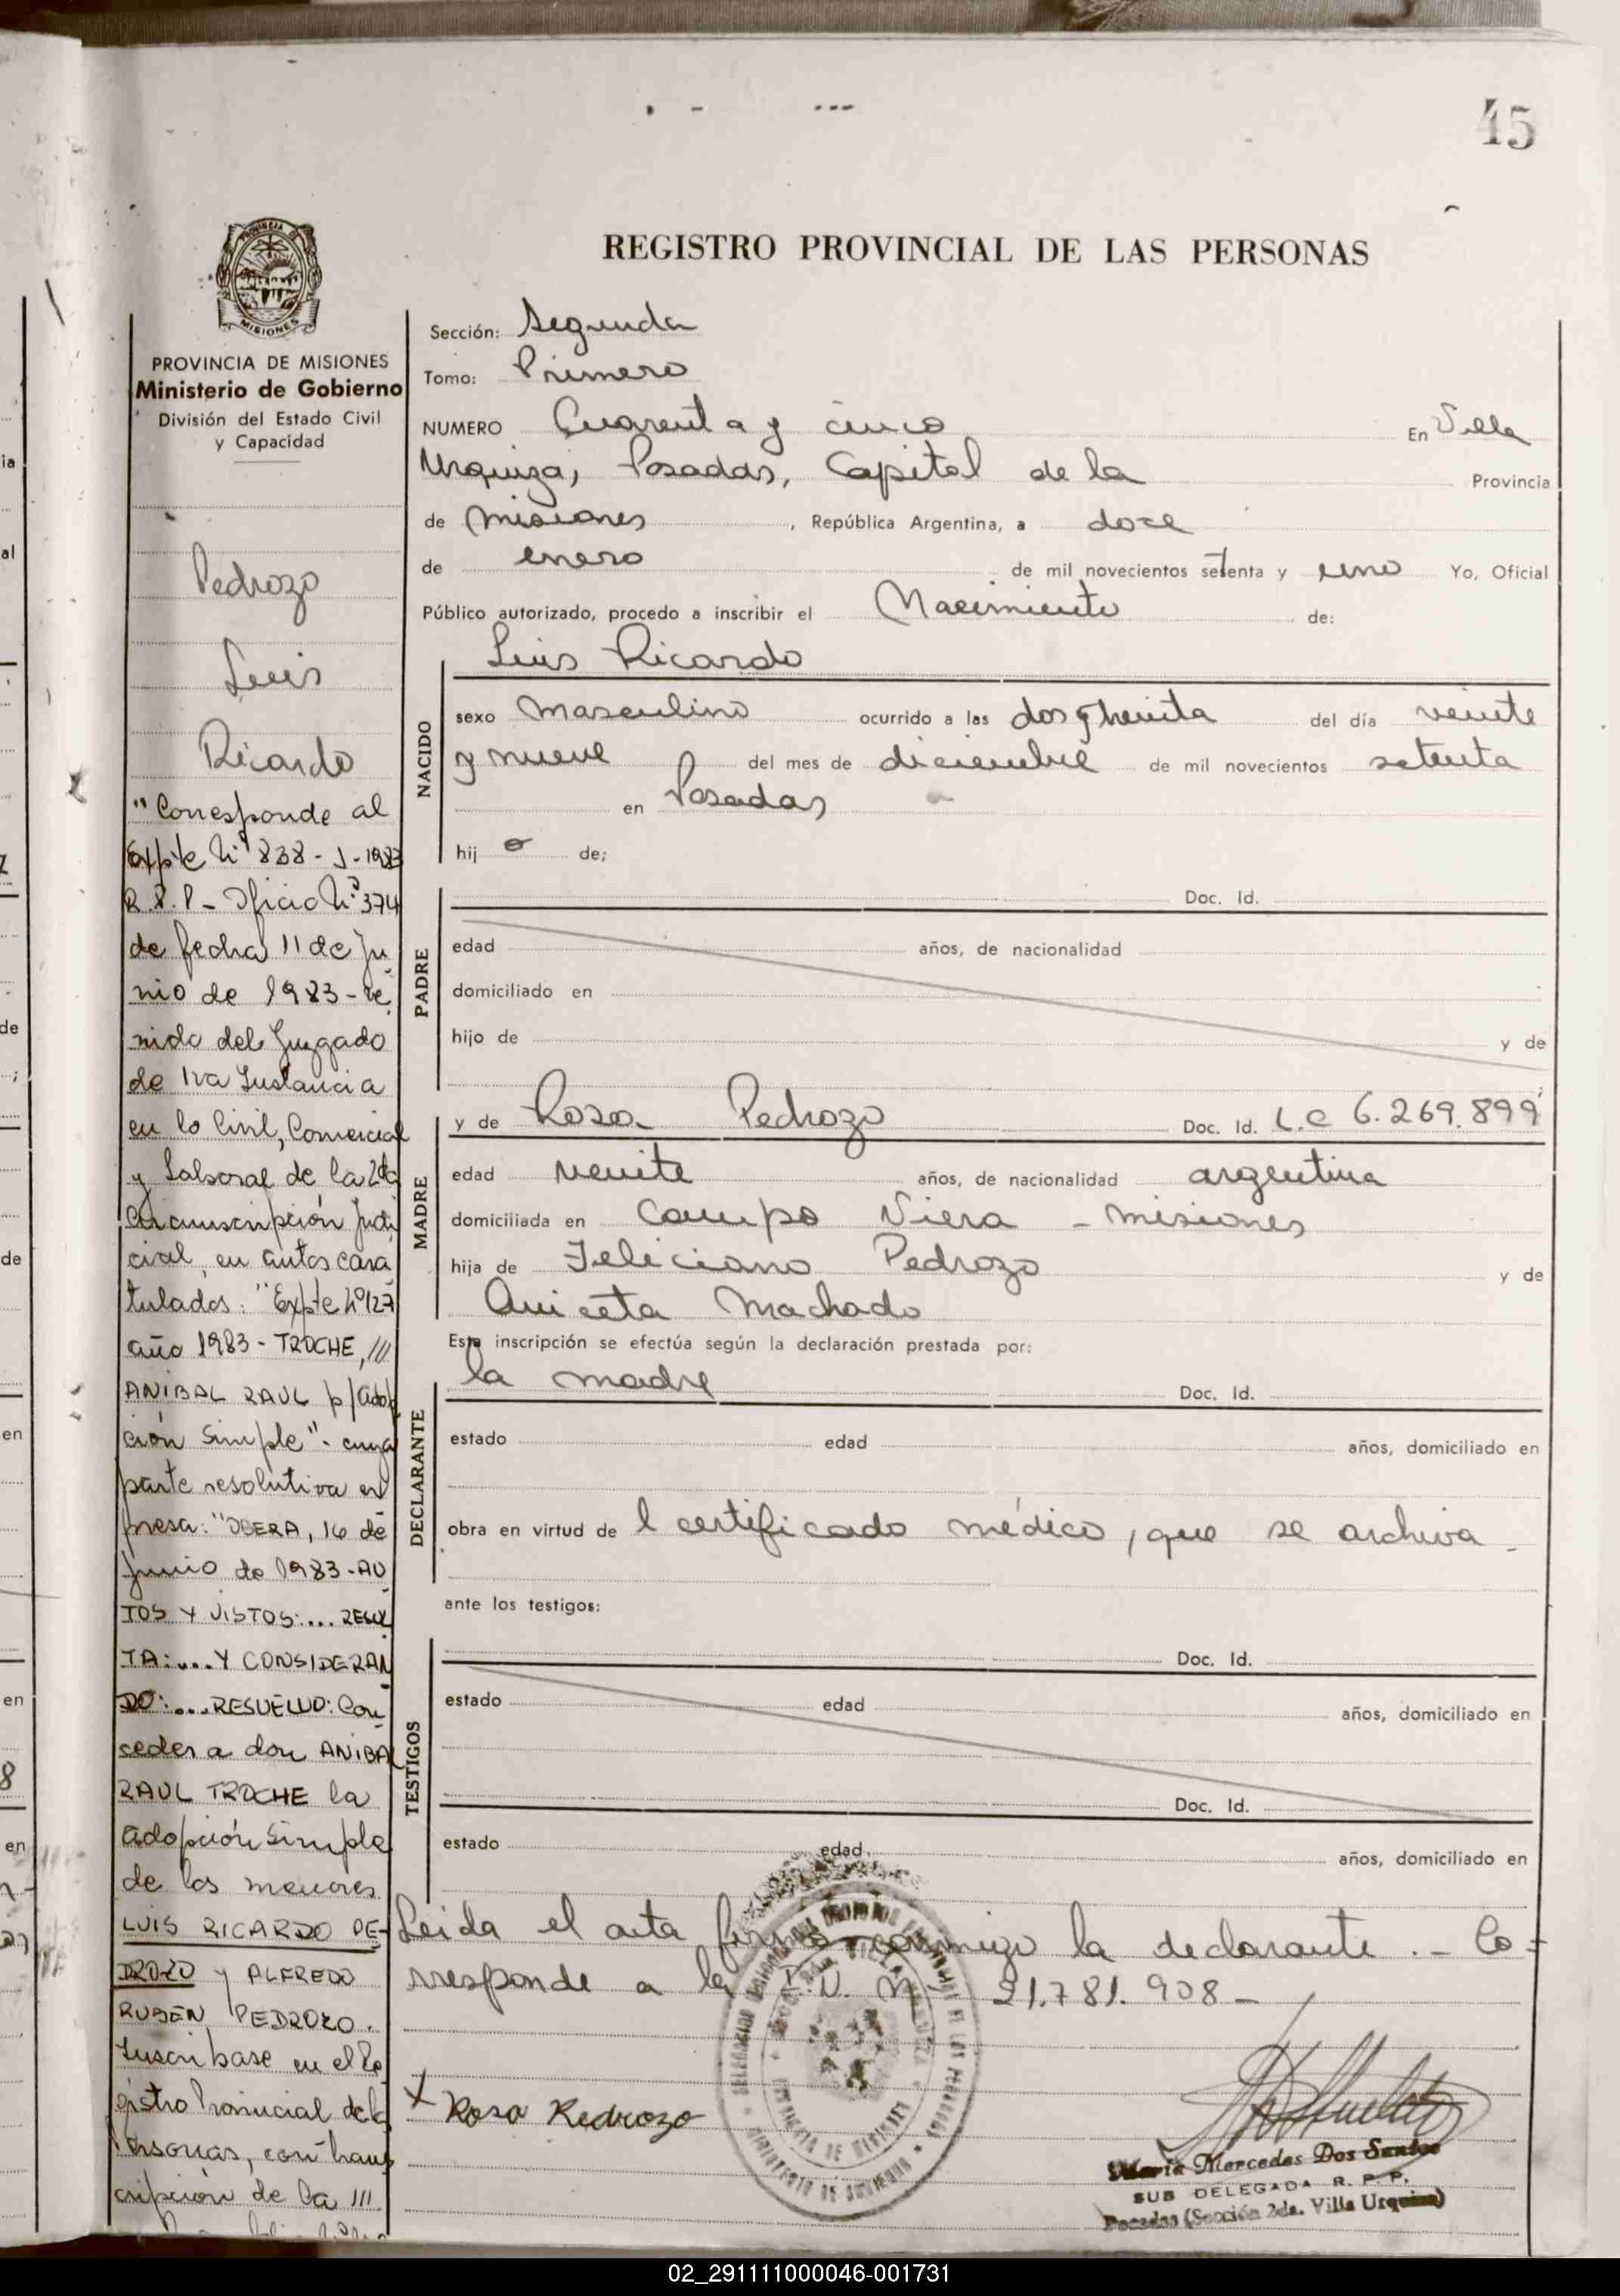 45
REGISTRO PROVINCIAL DE LAS PERSONAS
MISIONES
PROVINCIA DE MISIONES
Ministerio de Gobierno
División del Estado Civil
y Capacidad
Pedrozo
Luis
Ricardo
"Corresponde al
Expte Nº 838-J-1983
R.P.P - Oficio Nº 374
de fecha 11 de Ju
nio de 1983 - re
mido del Juzgado
de 1ra Instancia
en lo Civil, Comercial
y Laboral de la 2da
Circunscripción Judi
cial, en autos cara
tulados: "Expte Nº 127
año 1983 - TROCHE, ///
ANIBAL RAUL p/adop
ción Simple" - cuya
parte resolutiva ex
presa: "OBERA, 16 de
Junio de 1983 - AU
TOS Y VISTOS:... RESUL
TA:... Y CONSIDERAN
DO:... RESUELVO: Con
ceder a don ANIBAL
RAUL TROCHE la
adopción Simple
de los menores
LUIS RICARDO PE-
DROZO y ALFREDO
RUBEN PEDROZO.
Inscribase en el Re
gistro Provincial de las
Personas, con trans
cripción de la ///
Sección: Segunda
Tomo: Primero
NUMERO Cuarenta y cinco En Villa
Urquiza, Posadas, Capital de la Provincia
de Misiones, República Argentina, a doce
de enero de mil novecientos setenta y uno Yo, Oficial
Público autorizado, procedo a inscribir el Nacimiento de:
Luis Ricardo
NACIDO
sexo masculino ocurrido a las dos y treinta del día veinte
y nueve del mes de diciembre de mil novecientos setenta
en Posadas
hij o de;
PADRE
Doc. Id.
edad años, de nacionalidad
domiciliado en
hijo de y de
MADRE
y de Rosa Pedrozo Doc. Id. L.C 6.269.899
edad veinte años, de nacionalidad argentina
domiciliada en Campo Viera - Misiones
hija de Feliciano Pedrozo y de
Aniceta Machado
Esta inscripción se efectúa según la declaración prestada por:
DECLARANTE
la madre Doc. Id.
estado edad años, domiciliado en
obra en virtud de l certificado médico, que se archiva -
ante los testigos:
TESTIGOS
Doc. Id.
estado edad años, domiciliado en
Doc. Id.
estado edad años, domiciliado en
Leida el acta firma conmigo la declarante .- Co-
rresponde a la L.U. Nº 21.781.908 -
x Rosa Pedrozo
Maria Mercedes Dos Santos
SUB DELEGADA R. P. P.
Posadas (Sección 2da. Villa Urquiza)
02_291111000046-001731